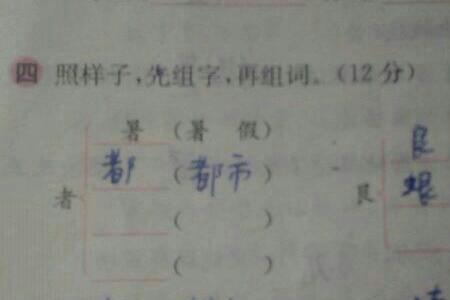 四 照样子,先组字,再组词。(12分)
暑 (暑 假)
都 (都市)
者
( )
( )
艮